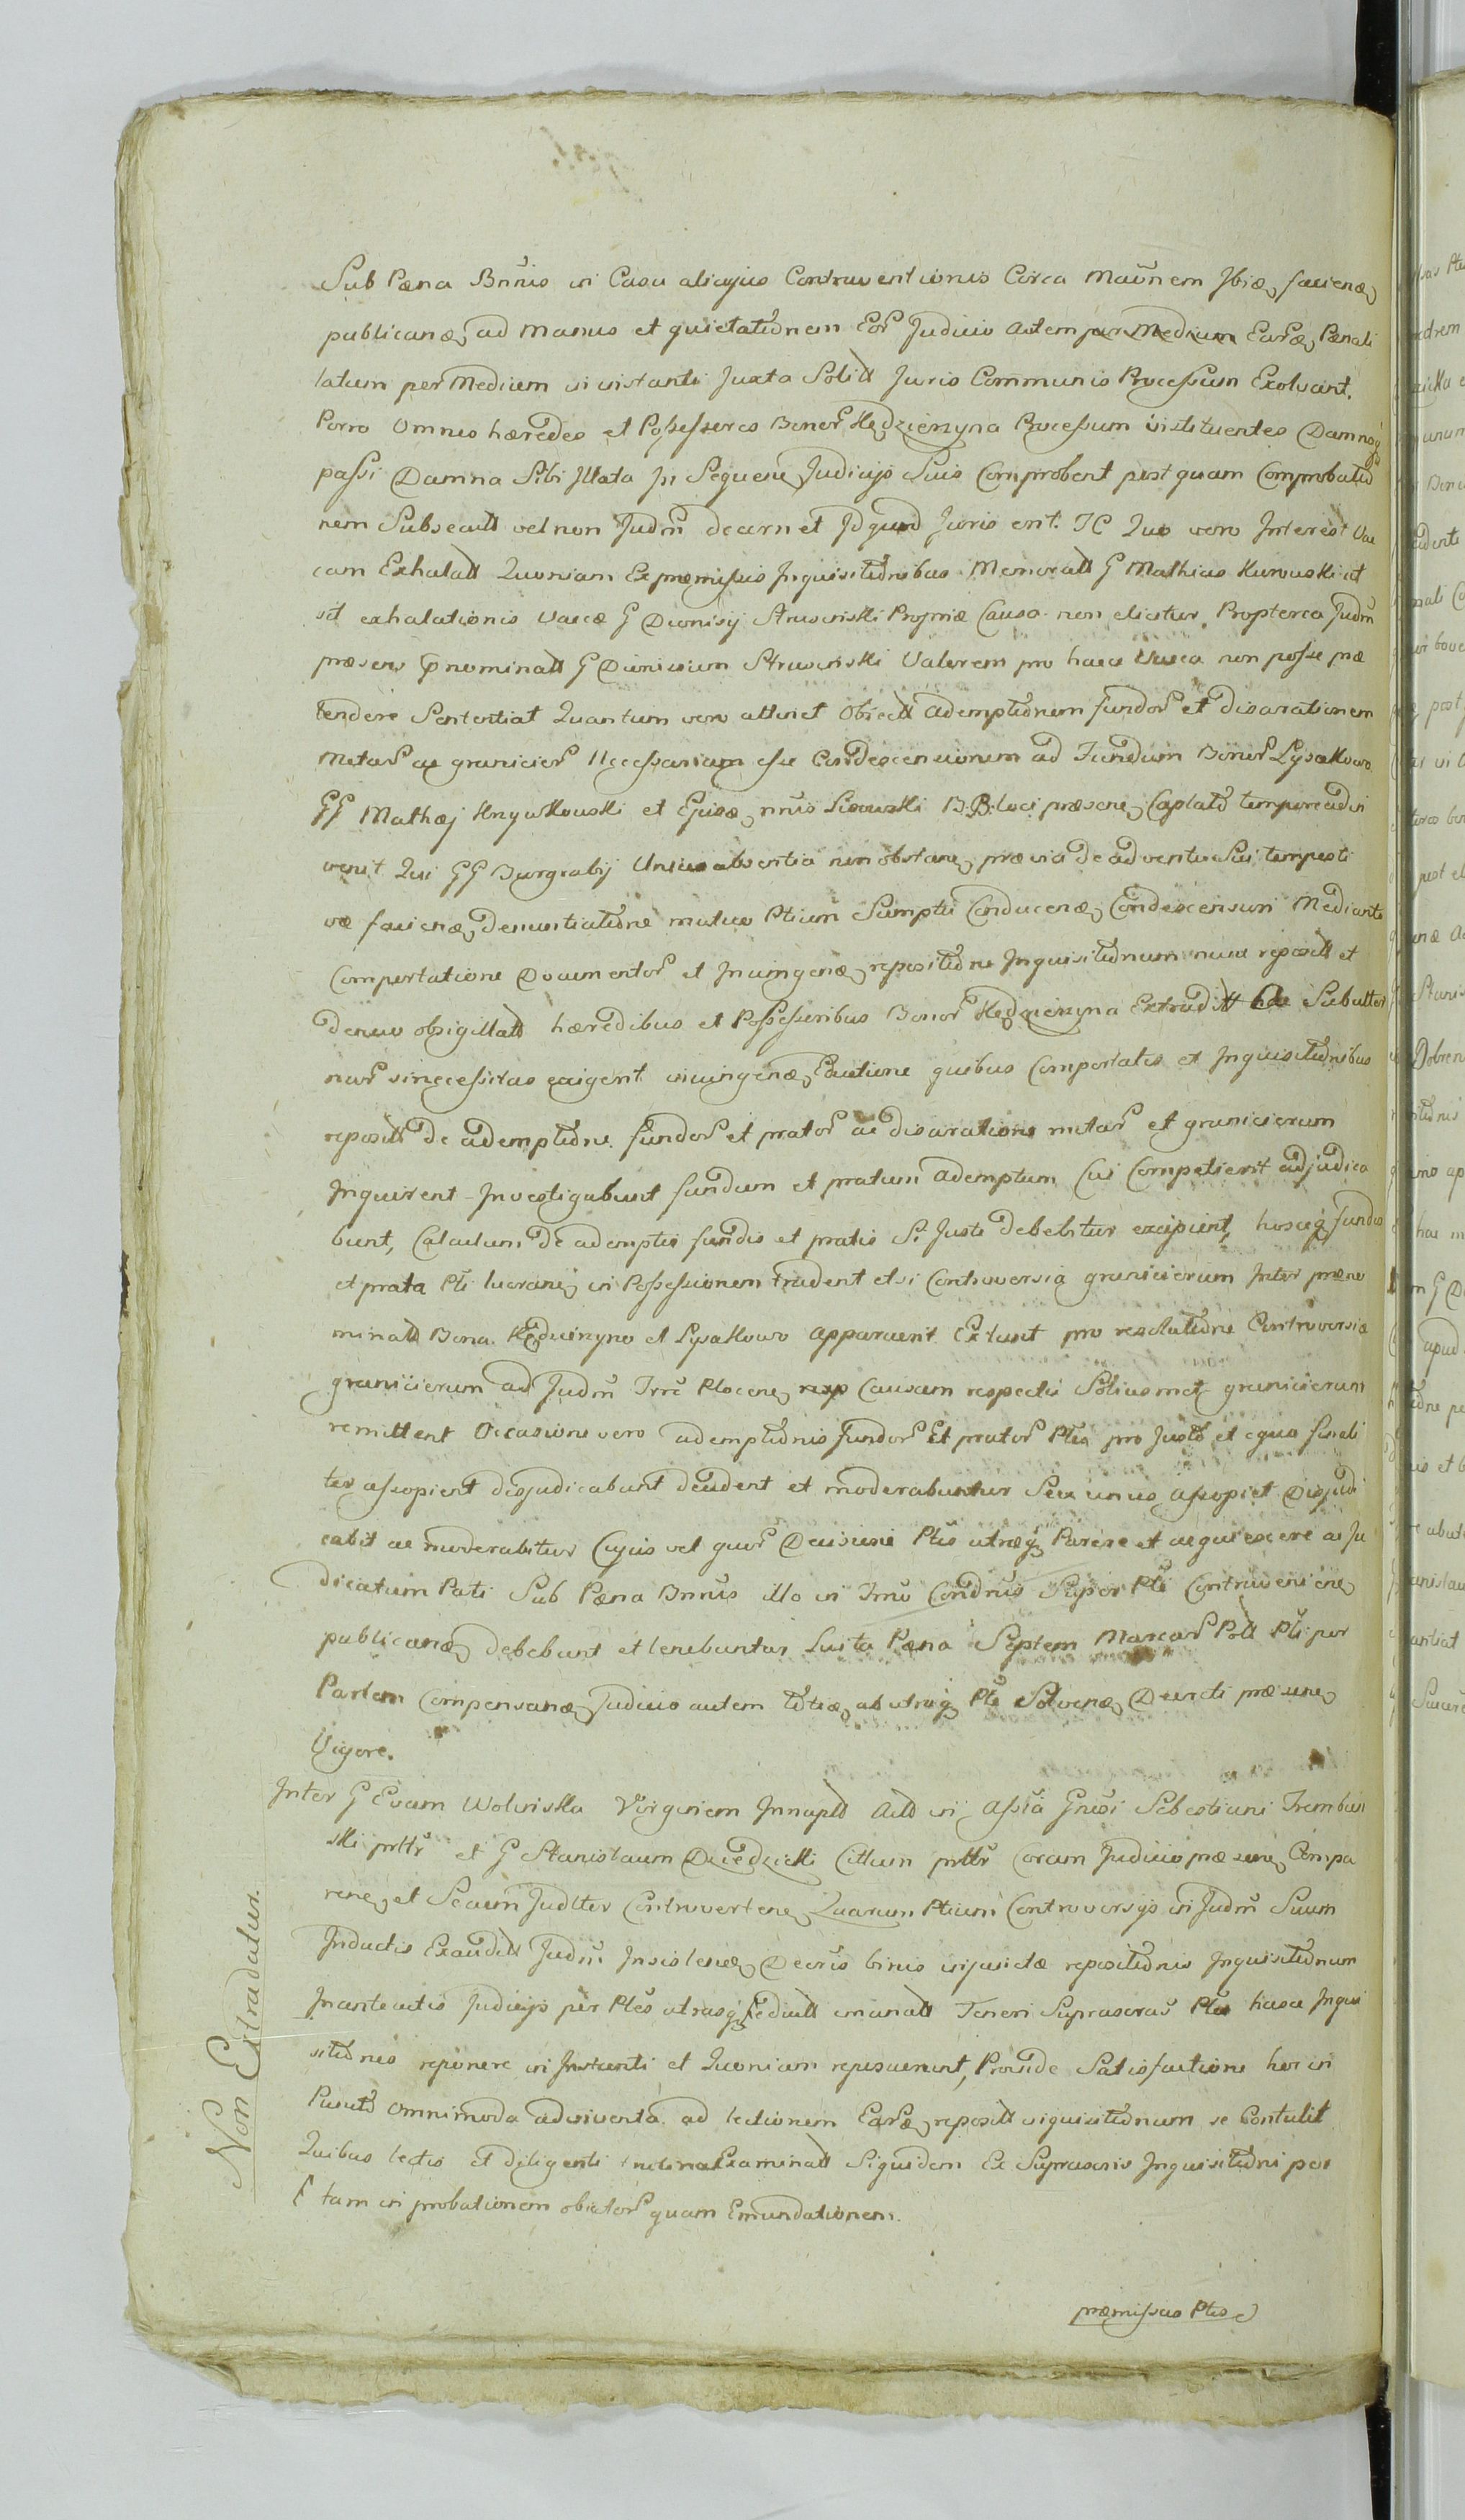 Sub Pæna Bnnis in Casu alicujus Contraventionis Circa Maũnem Jbiæ, faciendæ,
publicanæ, ad manus et quietatiõnem Eor Judicio autem per Medium Earæ, Pænali
tatum per Medium in instanti Juxta Solitt Juris Communis Processum Exolvant.
Porro Omnes hæredes et Possessores Bonor Kędzierzyna Processum instituentes Damnaq
passi Damna Sibi Illata In Sequene, Judicijs Suis Comprobent post quam Comprobatio
nem Subsecutt vel non Judm decernet Id quod Juris erit. IC Quo vero Interest Vac
cam Exhalatt Quoniam Ex præmissis Inquisitionibus Memoratt G Mathias Kurowski ut
sit exhalationis vaccæ G Dionisij Strusinski Propriæ Causa non elicitur, Propterea Judm
præsens nominatt G Dionisium Strusinski Valorem pro hacce Vacca non posse præ
tendere Sententiat Quantum vero attinet Objectt ademptionem fundor et disarationem
Metar ac granicier Necessariam esse Condescensionem ad Fundum Bonor Łysakowo
GG Mathæj Krzywkowski et Ejusdæ, nnis Sisowski B:B: loci præsene, Captato tempore adin
venit Qui GG Burgrabij Unius absentia non obstane, prævia de adventu Sui tempesti
væ faciendæ, denuntiatiõne mutuo Ptium Sumptu Conducenæ, Condescensuri Mediante
Comportatione Documentor et Inungenæ, repositiõne Inquisitiõnum nunc repositt et
denuo obsigillatt hæredibus et Possessoribus Bonor Kędzierzyna Extraditt hac Subalter
nar si necessitas exigerit inungenæ, Eductione quibus Comportatis et Inquisitiõnibus
repositt de ademptiõne fundor et prator ac disaratione metar et granicierum
Inquirent Investigabunt fundum et pratum ademptum Cui Competierit adjudica
bunt, Calculum de ademptis fundis et pratis Si Juste debebitur excipient, hosceq fundos
et prata Pti lucrane, in Possessionem tradent et si Controversia granicierum Inter præno
minatt Bona Kędzierzyno et Łysakowo apparuerit Extunc pro resolutiõne Controversiæ
granicierum ad Judm Trre Plocene, Causam respectu Solius met granicierum
remittent Occasione vero ademptiõnis fundor Et prator Ptes pro Justo et equo finali
ter assopient disjudicabunt decident et moderabuntur Seu unus assopiet Disjudi
cabit ac moderabitur Cujus vel quor Decisioni Ptes utræq Parere et acquiescere ac Ju
dicatum Pati Sub Pæna Bnnis illo in Trno Condnis Super Pte Contraveniene,
publicanæ, debebunt et tenebuntur Luita Pæna Septem Marcar Poll Pti per
Partem Compensanæ, Judicio autem ab utraq Pte Solvenæ, Decreti præsene,
Vigore.
Inter G Evam Wolinska Virginem Innuptt in Assia Gnosi Sebestiani Trembin
ski prttr et G Stanislaum Dziedzicki Cittum prttr Coram Judicio præsene, Compa
rene, et Secum Judlter Controvertene, Quarum Ptium Controversijs in Judm Suum
Inductis Exauditt Judm Insistene, Decris binis injunctæ repositiõnis Inquisitiõnum
In anteactis Judicijs per Ptes utrasq eductt emanatt Teneri Suprascras Ptes hasce Inqui
sitiõnes reponere in Instanti et Quoniam reposuerunt, Proinde Satisfactione hoc in
Puncto omnimoda adinventa ad lectionem Earæ, repositt inquisitiõnum se Contulit
Quibus lectis et diligenti trutina Examinatt Siquidem Ex Suprascris Inquisitiõni per
tam in probationem objector quam Emundationem.
præmissas Ptes
Non Extradatur.